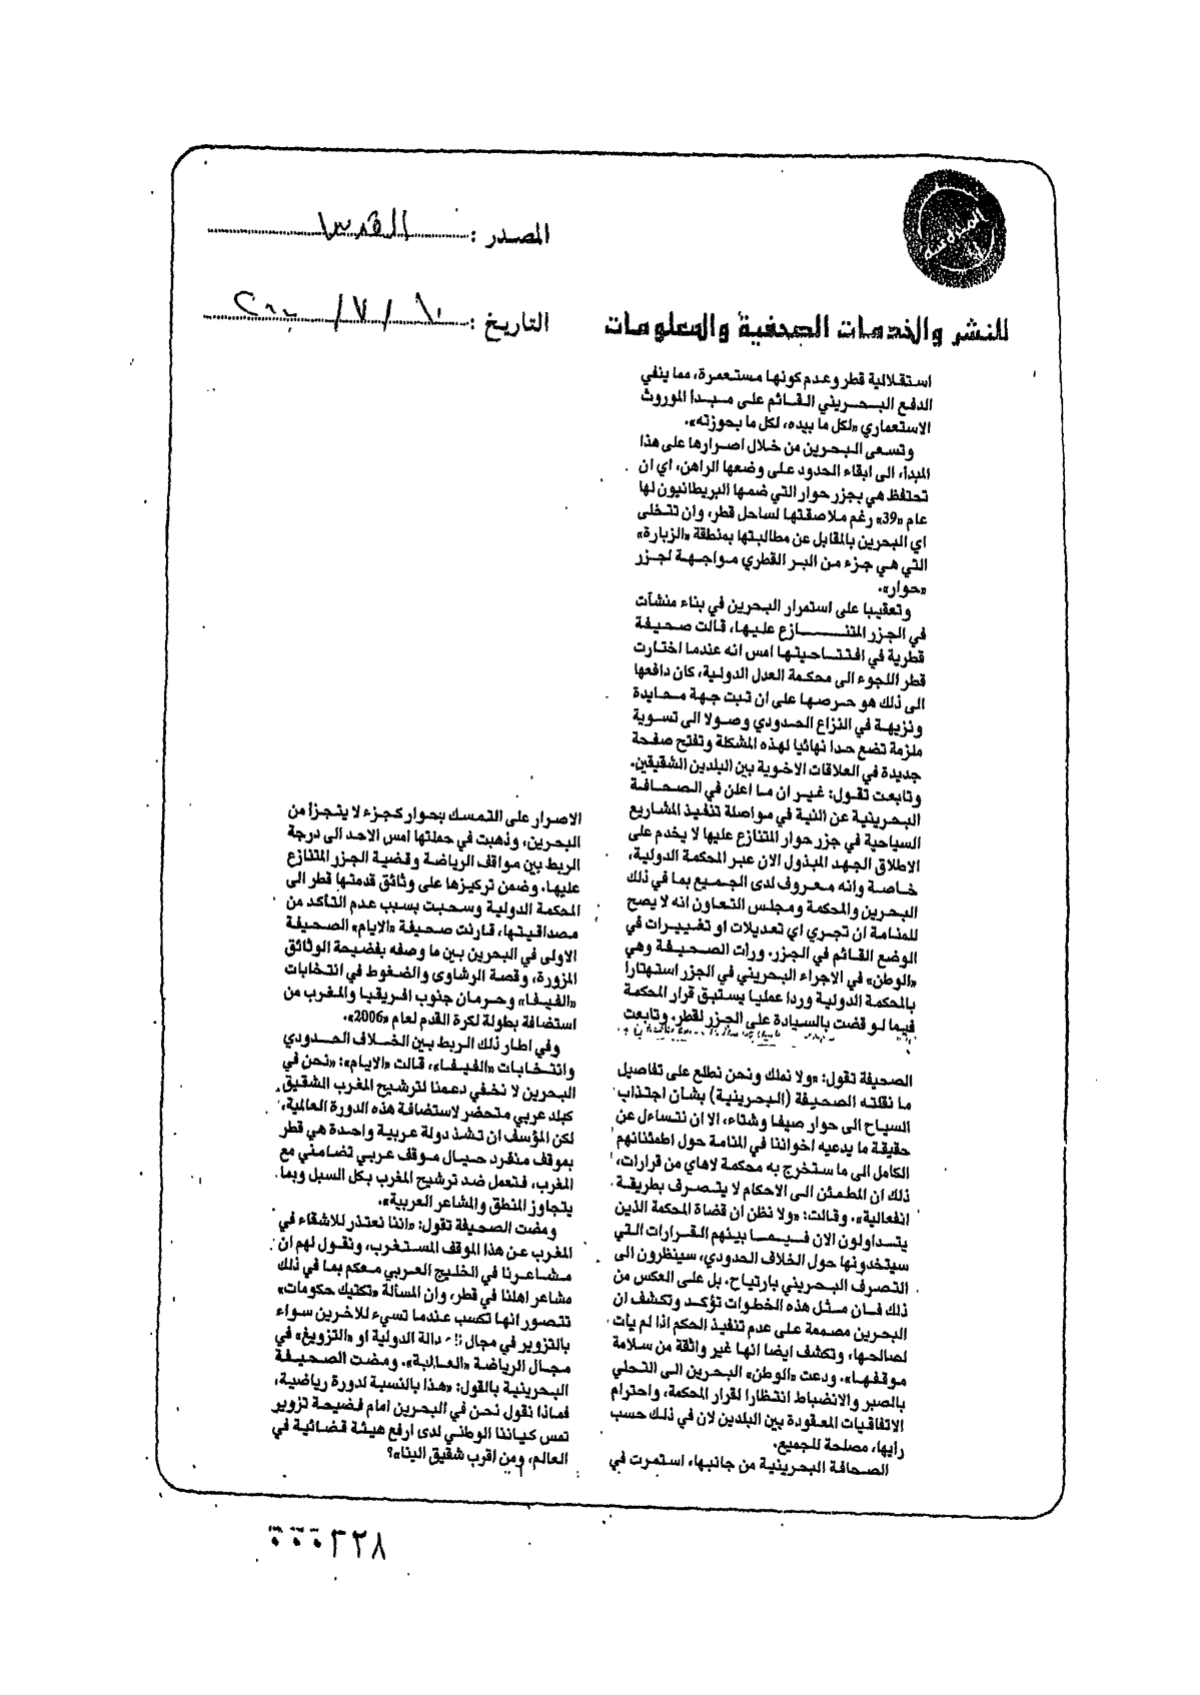 المصدر : القدس
التاريخ : ١٠ / ٧ /
للنشر والخدمات الصحفية والمعلومات
استقلالية قطر وعدم كونها مستعمرة، مما ينفي
الدفع البحريني القائم على مبدأ الموروث
الاستعماري «لكل ما بيده، لكل ما بحوزته».
وتسعى البحرين من خلال اصرارها على هذا
المبدأ، الى ابقاء الحدود على وضعها الراهن، اي ان
تحتفظ هي بجزر حوار التي ضمها البريطانيون لها
عام «39» رغم ملاصقتها لساحل قطر، وان تتخلى
اي البحرين بالمقابل عن مطالبتها بمنطقة «الزبارة»
التي هي جزء من البر القطري مواجهة لجزر
«حوار».
وتعقيبا على استمرار البحرين في بناء منشآت
في الجزر المتنازع عليها، قالت صحيفة
قطرية في افتتاحيتها امس انه عندما اختارت
قطر اللجوء الى محكمة العدل الدولية، كان دافعها
الى ذلك هو حرصها على ان تبت جهة محايدة
ونزيهة في النزاع الحدودي وصولا الى تسوية
ملزمة تضع حدا نهائيا لهذه المشكلة وتفتح صفحة
جديدة في العلاقات الاخوية بين البلدين الشقيقين.
وتابعت تقول: غير ان ما اعلن في الصحافة
البحرينية عن النية في مواصلة تنفيذ المشاريع
السياحية في جزر حوار المتنازع عليها لا يخدم على
الاطلاق الجهد المبذول الان عبر المحكمة الدولية،
خاصة وانه معروف لدى الجميع بما في ذلك
البحرين والمحكمة ومجلس التعاون انه لا يصح
للمنامة ان تجري اي تعديلات او تغييرات في
الوضع القائم في الجزر. ورأت الصحيفة وهي
«الوطن» في الاجراء البحريني في الجزر استهتارا
بالمحكمة الدولية وردا عمليا يستبق قرار المحكمة
فيما لو قضت بالسيادة على الجزر لقطر. وتابعت
الصحيفة تقول: «ولا نملك ونحن نطلع على تفاصيل
ما نقلته الصحيفة (البحرينية) بشان اجتذاب
السياح الى حوار صيفا وشتاء، الا ان نتساءل عن
حقيقة ما يدعيه اخواننا في المنامة حول اطمئنانهم
الكامل الى ما ستخرج به محكمة لاهاي من قرارات،
ذلك ان المطمئن الى الاحكام لا يتصرف بطريقة
انفعالية». وقالت: «ولا نظن ان قضاة المحكمة الذين
يتداولون الان فيما بينهم القرارات التي
سيتخدونها حول الخلاف الحدودي، سينظرون الى
التصرف البحريني بارتياح. بل على العكس من
ذلك فان مثل هذه الخطوات تؤكد وتكشف ان
البحرين مصممة على عدم تنفيذ الحكم اذا لم يأت
لصالحها، وتكشف ايضا انها غير واثقة من سلامة
موقفها». ودعت «الوطن» البحرين الى التحلي
بالصبر والانضباط انتظارا لقرار المحكمة، واحترام
الاتفاقيات المعقودة بين البلدين لان في ذلك حسب
رايها، مصلحة للجميع.
الصحافة البحرينية من جانبها، استمرت في
الاصرار على التمسك بحوار كجزء لا يتجزأ من
البحرين، وذهبت في حملتها امس الاحد الى درجة
الربط بين مواقف الرياضة وقضية الجزر المتنازع
عليها. وضمن تركيزها على وثائق قدمتها قطر الى
المحكمة الدولية وسحبت بسبب عدم التأكد من
مصداقيتها، قارنت صحيفة «الايام» الصحيفة
الاولى في البحرين بين ما وصفه بفضيحة الوثائق
المزورة، وقصة الرشاوى والضغوط في انتخابات
«الفيفا» وحرمان جنوب افريقيا والمغرب من
استضافة بطولة لكرة القدم لعام «2006».
وفي اطار ذلك الربط بين الخلاف الحدودي
وانتخابات «الفيفا»، قالت «الايام»: «نحن في
البحرين لا نخفي دعمنا لترشيح المغرب الشقيق
كبلد عربي متحضر لاستضافة هذه الدورة العالمية،
لكن المؤسف ان تشذ دولة عربية واحدة هي قطر
بموقف منفرد حيال موقف عربي تضامني مع
المغرب، فتعمل ضد ترشيح المغرب بكل السبل وبما
يتجاوز المنطق والمشاعر العربية».
ومضت الصحيفة تقول: «اننا نعتذر للاشقاء في
المغرب عن هذا الموقف المستغرب، ونقول لهم ان
مشاعرنا في الخليج العربي معكم بما في ذلك
مشاعر اهلنا في قطر، وان المسألة «تكتيك حكومات»
تتصور انها تكسب عندما تسيء للاخرين سواء
بالتزوير في مجال العدالة الدولية او «التزويغ» في
مجال الرياضة «العالمية». ومضت الصحيفة
البحرينية بالقول: «هذا بالنسبة لدورة رياضية،
فماذا نقول نحن في البحرين امام فضيحة تزوير
تمس كياننا الوطني لدى ارفع هيئة قضائية في
العالم، ومن اقرب شقيق الينا»؟
٠٠٠٣٢٨